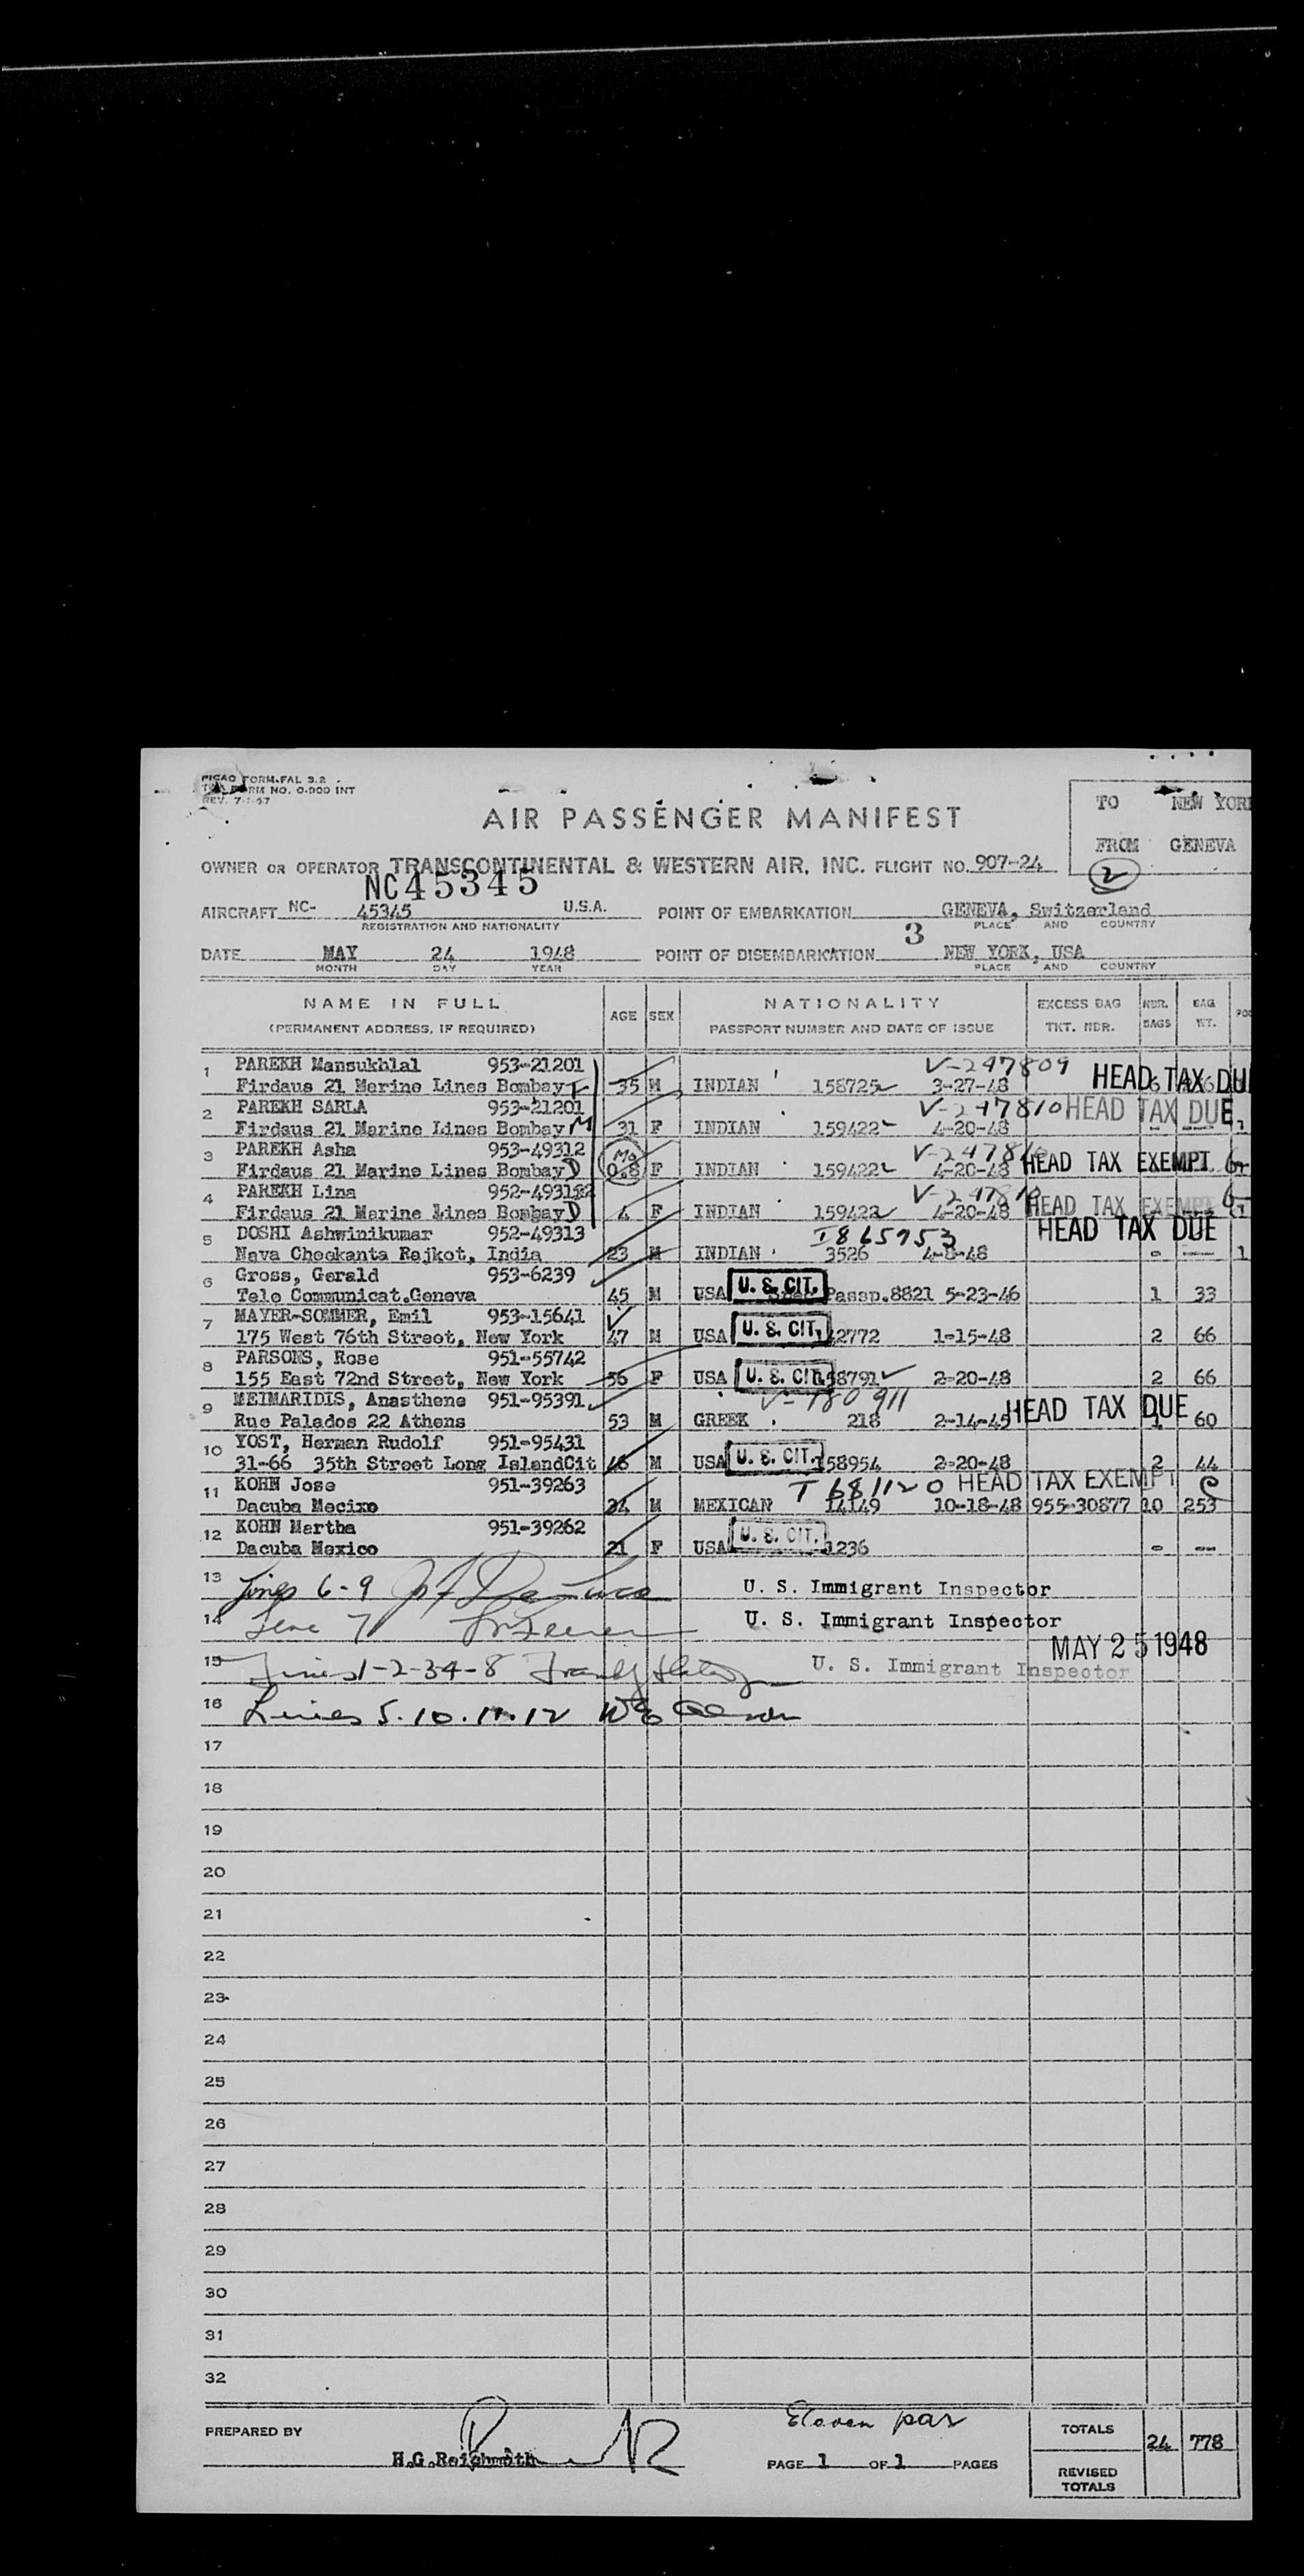 PICAO FORM-FAL 3.2
FORM NO. 0-900 INT
REV. 7-1-47
AIR PASSENGER MANIFEST
TO NEW YORK
FROM GENEVA
2
OWNER OR OPERATOR TRANSCONTINENTAL & WESTERN AIR, INC. FLIGHT NO. 907-24
NC45345
AIRCRAFT NC- 45345 U.S.A. POINT OF EMBARKATION GENEVA, Switzerland
REGISTRATION AND NATIONALITY PLACE AND COUNTRY
3
DATE MAY 24 1948 POINT OF DISEMBARKATION NEW YORK, USA
MONTH DAY YEAR PLACE AND COUNTRY
NAME IN FULL AGE SEX NATIONALITY EXCESS BAG NBR. BAG
(PERMANENT ADDRESS, IF REQUIRED) PASSPORT NUMBER AND DATE OF ISSUE TKT. NBR. BAGS WT.
1 PAREKH Mansukhlal 953-21201 V-247809 HEAD TAX DU
Firdaus 21 Marine Lines Bombay 35 M INDIAN 158725 3-27-48
2 PAREKH SARLA 953-21201 V-247810 HEAD TAX DUE
Firdaus 21 Marine Lines Bombay M 31 F INDIAN 159422 4-20-48
3 PAREKH Asha 953-49312 Mo HEAD TAX EXEMPT
Firdaus 21 Marine Lines Bombay D 0.8 F INDIAN 159422 4-20-48
4 PAREKH Lina 952-49312 HEAD TAX EXEMPT
Firdaus 21 Marine Lines Bombay D 4 F INDIAN 159422 4-20-48
5 DOSHI Ashwinikumar 952-49313 I865953 HEAD TAX DUE
Nava Cheekanta Rajkot, India 23 M INDIAN 3526 4-8-48 - --- 1
6 Gross, Gerald 953-6239 U. S. CIT.
Tele Communicat.Geneva 45 M USA Passp.8821 5-23-46 1 33
7 MAYER-SOMMER, Emil 953-15641 U. S. CIT.
175 West 76th Street, New York 47 M USA 42772 1-15-48 2 66
8 PARSONS, Rose 951-55742 U. S. CIT.
155 East 72nd Street, New York 56 F USA 58791 2-20-48 2 66
9 MEIMARIDIS, Anasthene 951-95391 V-180911 HEAD TAX DUE
Rue Palados 22 Athens 53 M GREEK 218 2-14-45 1 60
10 YOST, Herman Rudolf 951-95431 U. S. CIT.
31-66 35th Street Long IslandCit 46 M USA 158954 2-20-48 2 44
11 KOHN Jose 951-39263 T 681120 HEAD TAX EXEMPT
Dacuba Mecixo 24 M MEXICAN 14149 10-18-48 955-30877 10 253
12 KOHN Martha 951-39262 U. S. CIT.
Dacuba Mexico 21 F USA 1236 - --
13 Lines 6-9 U. S. Immigrant Inspector
14 Line 7 U. S. Immigrant Inspector
MAY 25 1948
15 Lines 1-2-34-8 U. S. Immigrant Inspector
16 Lines 5.10.11.12
17
18
19
20
21
22
23
24
25
26
27
28
29
30
31
32
Eleven pax
PREPARED BY H.G.Reichmith PAGE 1 OF 1 PAGES
TOTALS 24 778
REVISED TOTALS